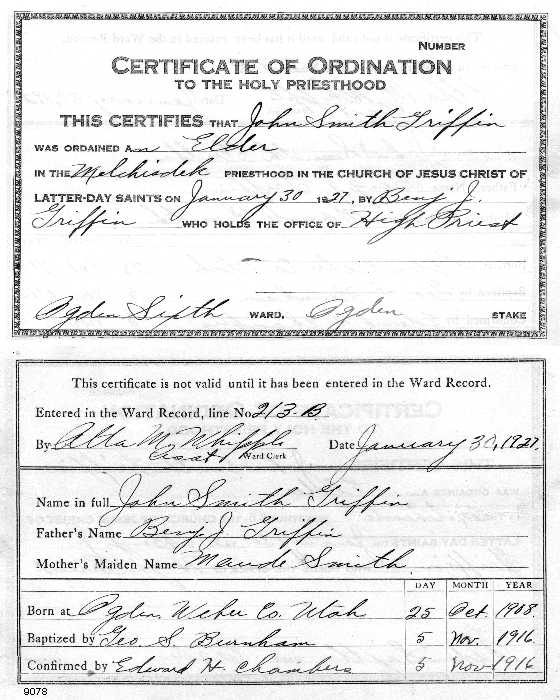 NUMBER
CERTIFICATE OF ORDINATION
TO THE HOLY PRIESTHOOD
THIS CERTIFIES THAT John Smith Griffin
WAS ORDAINED An Elder
IN THE Melchisdek PRIESTHOOD IN THE CHURCH OF JESUS CHRIST OF
LATTER-DAY SAINTS ON January 30 1927, BY Benj J.
Griffin WHO HOLDS THE OFFICE OF High Priest
Ogden Sixth WARD, Ogden STAKE
This certificate is not valid until it has been entered in the Ward Record.
Entered in the Ward Record, line No 213-B
By Alta M. Whipple Date January 30, 1927.
Asst Ward Clerk
Name in full John Smith Griffin
Father's Name Benj. J Griffin
Mother's Maiden Name Maude Smith
DAY MONTH YEAR
Born at Ogden, Weber Co. Utah 25 Oct. 1908.
Baptized by Geo S. Burnham 5 Nov. 1916.
Confirmed by Edward H. Chambers 5 Nov 1916
9078